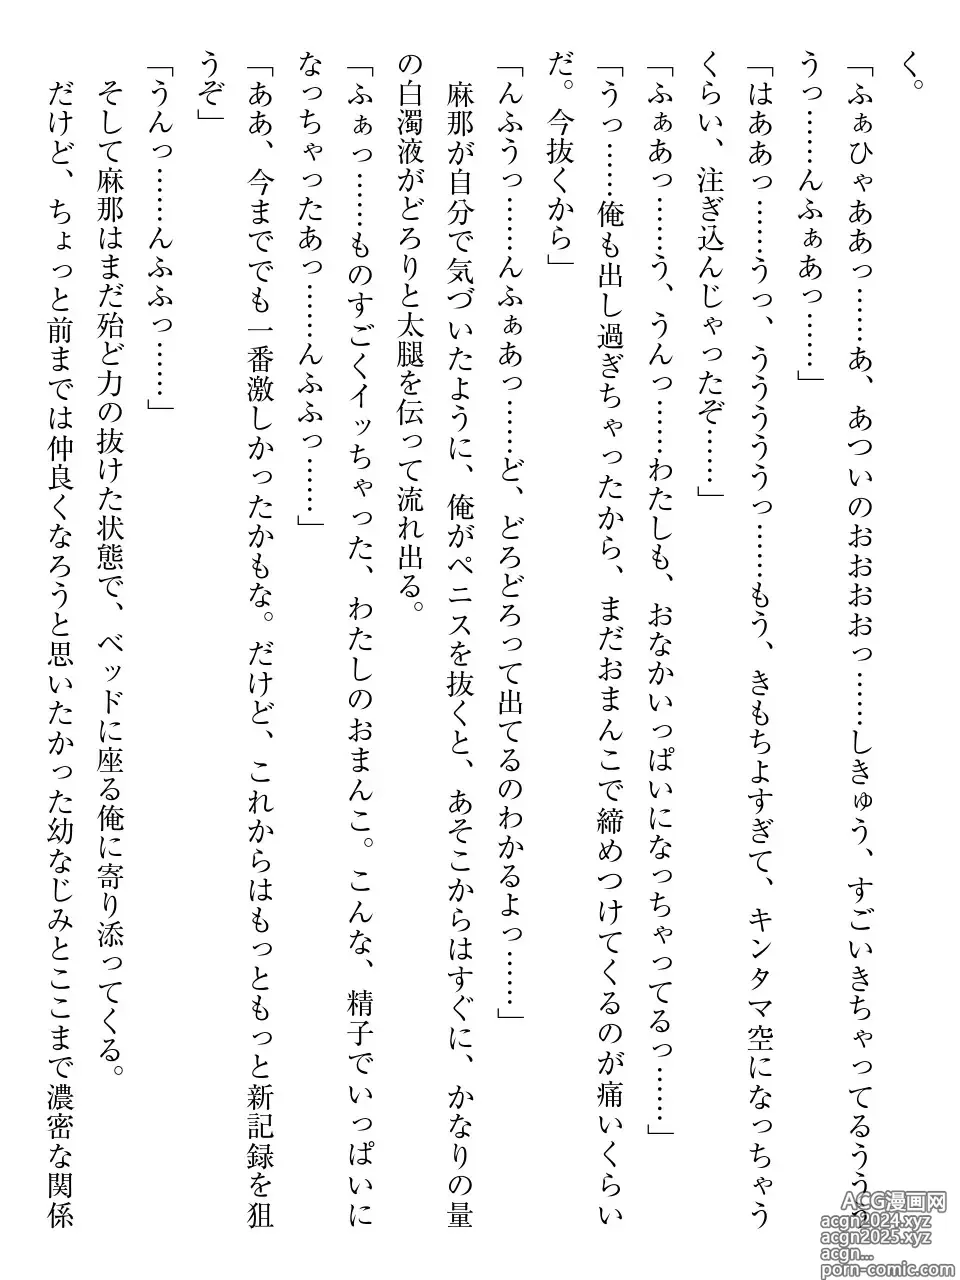 く。
「ふぁひゃああっ……あ、あついのおおおおっ……しきゅう、すごいきちゃってるううっ
うっ……んふぁあっ……」
「はああっ……うっ、うううううっ……もう、きもちよすぎて、キンタマ空になっちゃう
くらい、注ぎ込んじゃったぞ……」
「ふぁあっ……う、うんっ……わたしも、おなかいっぱいになっちゃってるっ……」
「うっ……俺も出し過ぎちゃったから、まだおまんこで締めつけてくるのが痛いくらい
だ。今抜くから」
「んふうっ……んふぁあっ……ど、どろどろって出てるのわかるよっ……」
麻那が自分で気づいたように、俺がペニスを抜くと、あそこからはすぐに、かなりの量
の白濁液がどろりと太腿を伝って流れ出る。
「ふぁっ……ものすごくイッちゃった、わたしのおまんこ。こんな、精子でいっぱいに
なっちゃったあっ……んふふっ……」
「ああ、今まででも一番激しかったかもな。だけど、これからはもっともっと新記録を狙
うぞ」
「うんっ……んふふっ……」
そして麻那はまだ殆ど力の抜けた状態で、ベッドに座る俺に寄り添ってくる。
だけど、ちょっと前までは仲良くなろうと思いたかった幼なじみとここまで濃密な関係
ACG漫画网
acgn2024.xyz
acgn2025.xyz
acgn...
porn-comic.com